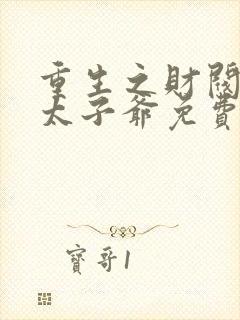 重生之財閥
太子爺免費
寶哥1